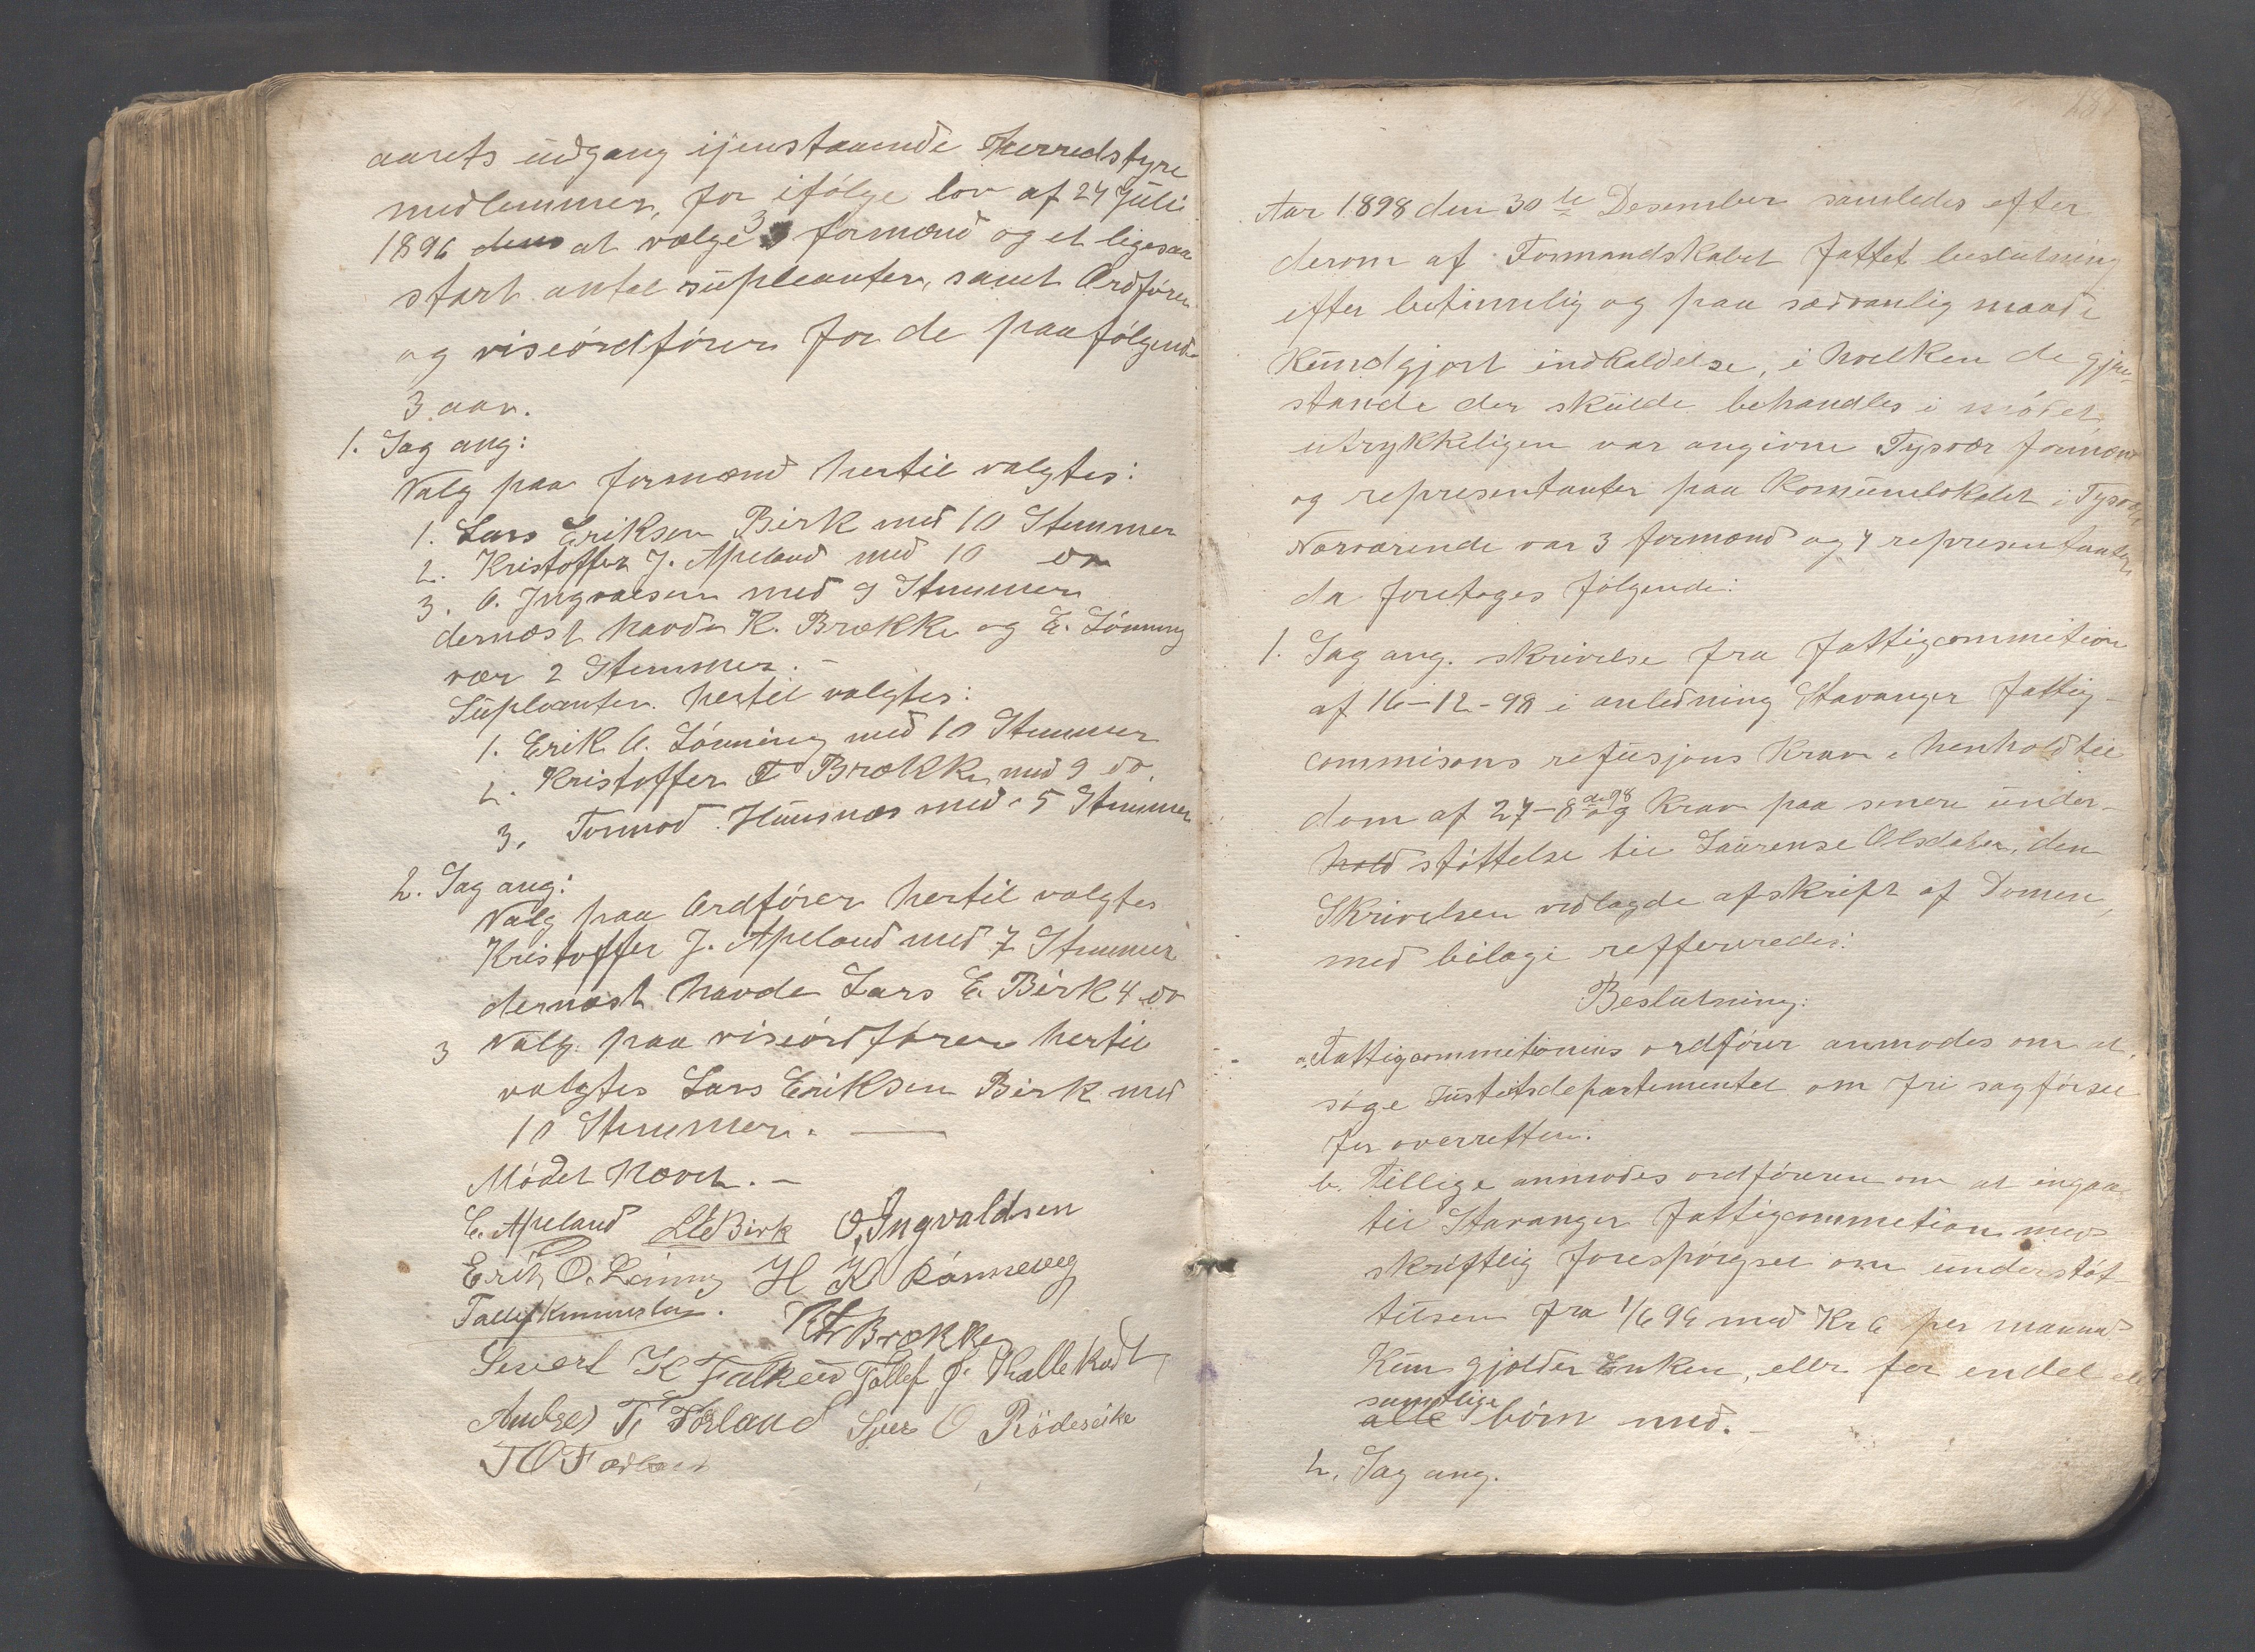 aarets udgang ijenstaaende Herredstyre
medlemmer, for ifølge lov af 24 Juli
1896 at vælge 3 formænd og et ligesaa
stort antal supleanter, samt Ordfører
og viseordfører for de paafølgende
3 aar.
1. Sag ang:
Valg paa formænd hertil valgtes:
1. Lars Eriksen Birk med 10 Stemmer
2. Kristoffer J. Apeland med 10 do
3. O. Ingvalsen med 9 Stemmer
dernæst havde K. Brække og E. Lønning
vær 2 Stemmer. -
Supleanter hertil valgtes:
1. Erik O. Lønning med 10 Stemmer
2. Kristoffer T Brække med 9 do.
3. Tormod Huusnæs med 5 Stemmer
2. Sag ang:
Valg paa Ordfører hertil valgtes
Kristoffer J. Apeland med 7 Stemmer
dernæst havde Lars E. Birk 4 do
3 Valg paa viseordfører hertil
valgtes Lars Eriksen Birk med
10 Stemmer. -
Mødet Hævet. -
Apeland L E Birk O, Ingvaldsen
Erik O. Lønning H K Rønnevig
K Brække
Sivert K Falkeid Tollef J. Skallekodt
T. Førland O Rødeseike
T O
Aar 1898 den 30te Desember samledes efter
derom af Formandskabet fattet beslutning
efter betimelig og paa sædvanlig maade
kundgjort indkaldelse, i hvilken de gjen-
stande der skulde behandles i mødet
utrykkeligen var angivne Tysvær formænd
og representanter paa Komunelokalet i Tysvær
Nærværende var 3 formænd og 7 representanter
da foretoges følgende:
1. Sag ang. skrivelse fra fattigcommition
af 16-12-98 i anledning Stavanger Fattig-
commisons refusjons krav i henhold til
dom af 27-8 98 og krav paa senere under-
hold støttelse til Laurense Olsdater, den
Skrivelsen vedlagde afskript af Domen,
med bilage refferredes:
Beslutning:
a. Fattigcommitionens ordfører anmodes om at
søge Justitsdepartementet om fri sagførsel
for overretten.
b. Tillige anmodes ordføreren om at ingaa
til Stavanger fattigcommetion med
skriftlig forespørgsel om understøt-
telsen fra 1/6 96 med Kr 6 per maaned
Kun gjælder Enken, eller for endel
samtlige
alle børn med. -
2. Sag ang.